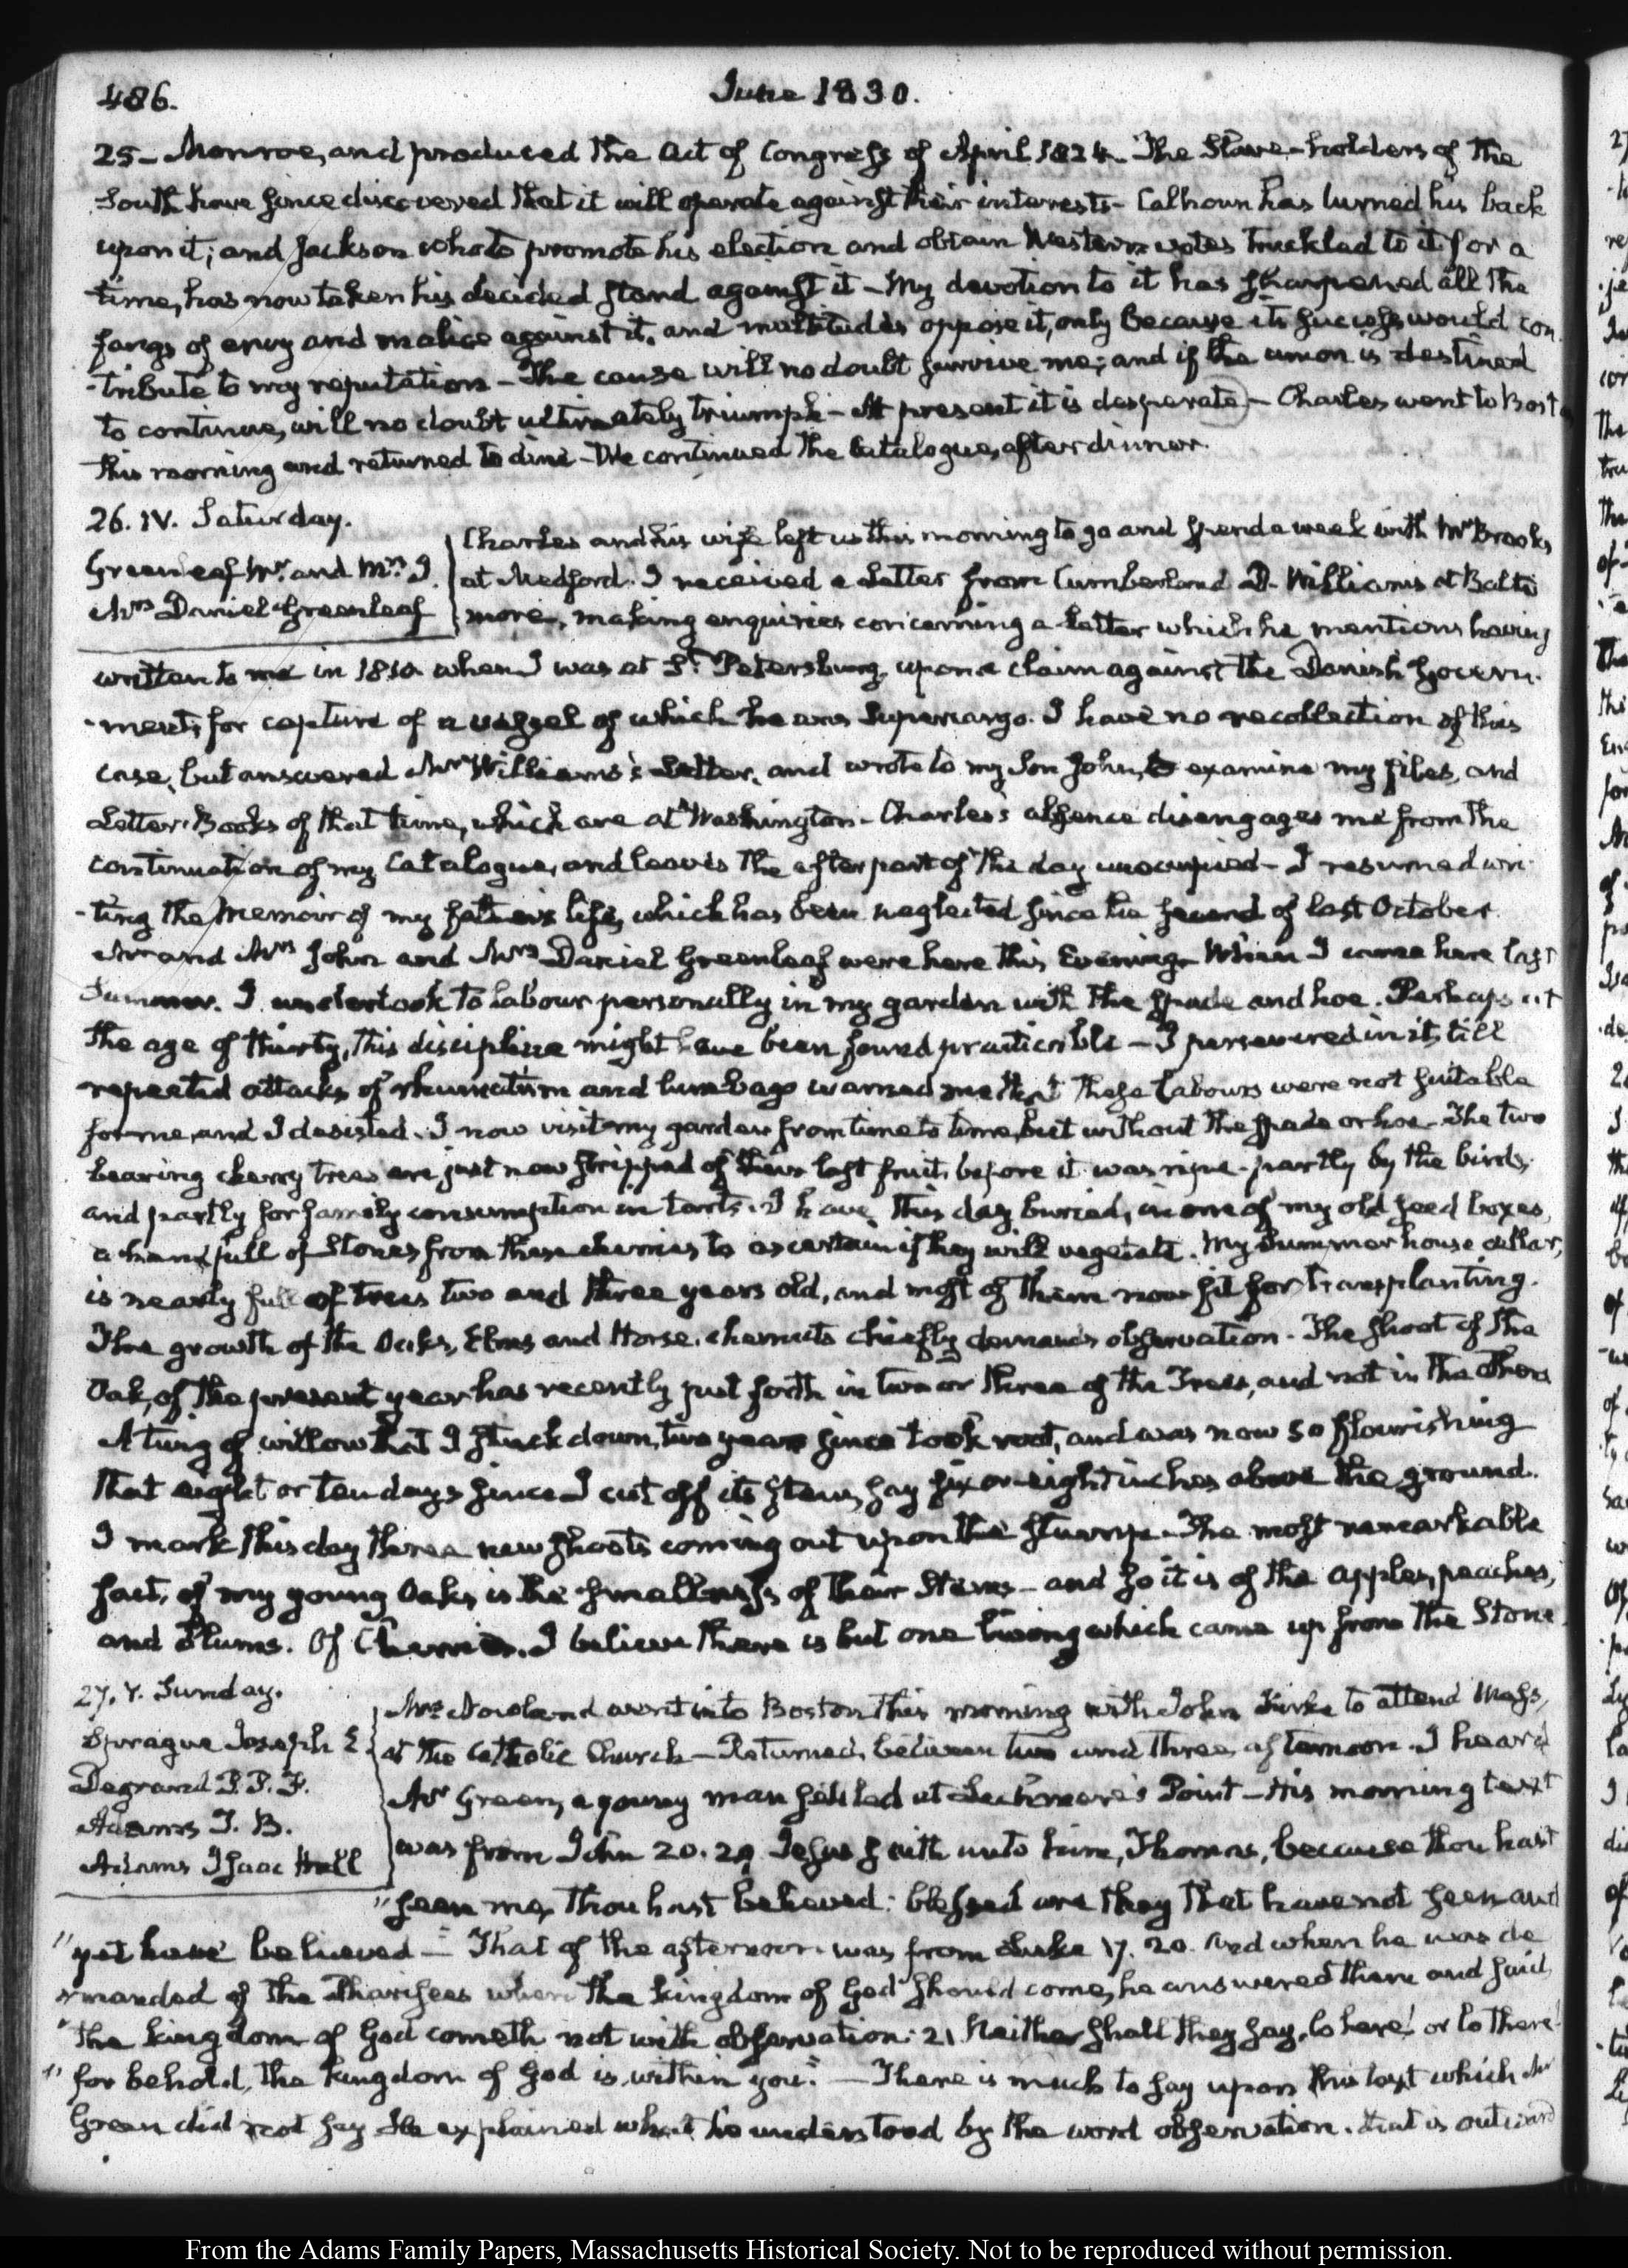 486.
June 1830.
25 - Monroe, and produced the Act of Congress of April 1824. The Slave-holders of the
South have since discovered that it will operate against their interests - Calhoun has turned his back
upon it; and Jackson who to promote his election and obtain Western votes truckled to it for a
time, has now taken his decided stand against it - My devotion to it has sharpened all the
fangs of envy and malice against it, and multitudes oppose it, only because its success would con
-tribute to my reputation - The cause will no doubt survive me; and if the union is destined
to continue, will no doubt ultimately triumph - At present it is desperate - Charles went to Bost
this morning and returned to dine - We continued the Catalogue, after dinner.
26. IV. Saturday.
Greenleaf Mr. and Mrs. J.
Mrs Daniel Greenleaf
Charles and his wife left us this morning to go and spend a week with Mr Brooks
at Medford. I received a Letter from Cumberland D. Williams at Balti
more, making enquiries concerning a Letter which he mentions having
written to me in 1810 when I was at St. Petersburg, upon a claim against the Danish Govern-
-ment, for capture of a vessel of which he was Supercargo. I have no recollection of this
case, but answered Mr Williams's Letter, and wrote to my Son John, to examine my files, and
Letter-Books of that time, which are at Washington - Charles's absence disengages me from the
continuation of my Catalogue, and leaves the after part of the day unoccupied - I resumed wri-
-ting the Memoir of my father's life, which has been neglected since the second of last October.
Mr and Mrs John and Mrs Daniel Greenleaf were here this Evening. When I came here last
Summer. I undertook to labour personally in my garden with the spade and hoe. Perhaps at
the age of thirty, this discipline might have been found practicable - I persevered in it, till
repeated attacks of rheumatism and lumbago warned me that these labours were not suitable
for me, and I desisted. I now visit my garden from time to time, but without the spade or hoe. The two
bearing cherry trees are just now stripped of their last fruit, before it was ripe - partly by the birds,
and partly for family consumption in tarts. I have this day buried, in one of my old seed boxes,
a handfull of Stones from these cherries to ascertain if they will vegetate. My Summer house cellar,
is nearly full of trees two and three years old, and most of them now fit for transplanting.
The growth of the Oaks, Elms and Horse-chesnuts chiefly demands observation. The shoot of the
Oak, of the present year has recently put forth in two or three of the Trees, and not in the others
A twig of willow that I stuck down, two years since took root, and was now so flourishing
that eight or ten days since I cut off its stem, say six or eight inches above the ground.
I mark this day three new shoots coming out upon the stump - The most remarkable
fact, of my young Oaks, is the smallness of their Stems - and so it is of the apples, peaches,
and Plums. Of Cherries, I believe there is but one living which came up from the Stone
27. V. Sunday.
Sprague Joseph E.
Degrand P. P. F.
Adams T. B.
Adams Isaac Hull
Mrs Nowland went into Boston this morning with John Kirke to attend Mass,
at the Catholic Church - Returned, between two and three, afternoon. I heard
Mr Green, a young man settled at Lechmere's Point - His morning text
was from John 20. 29. Jesus saith unto him, Thomas, because thou hast
"seen me, thou hast believed: blessed are they that have not seen and
"yet have believed - " That of the afternoon was from Luke 17. 20. And when he was de
"manded of the Pharisees when the kingdom of God should come, he answered them and said,
"the kingdom of God cometh not with observation: 21 Neither shall they say, lo here! or lo there!
"for behold, the kingdom of God is within you." - There is much to say upon this text which Mr
Green did not say. He explained what he understood by the word observation. that is outward
From the Adams Family Papers, Massachusetts Historical Society. Not to be reproduced without permission.